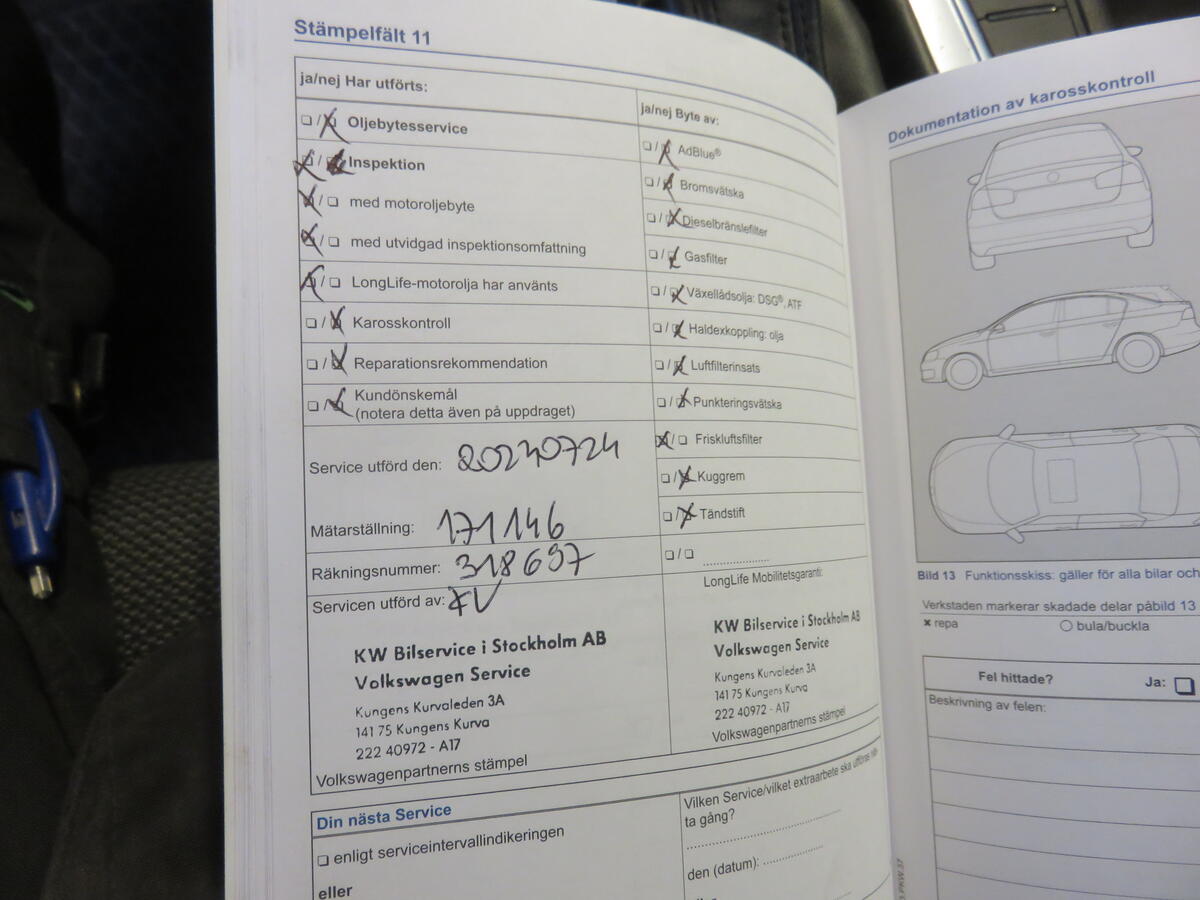 Stämpelfält 11
ja/nej Har utförts:
Oljebytesservice
Inspektion
med motoroljebyte
med utvidgad inspektionsomfattning
LongLife-motorolja har använts
Karosskontroll
Reparationsrekommendation
Kundönskemål
(notera detta även på uppdraget)
Service utförd den: 20230724
Mätarställning: 171146
Räkningsnummer: 318697
Servicen utförd av:
KW Bilservice i Stockholm AB
Volkswagen Service
Kungens Kurvaleden 3A
141 75 Kungens Kurva
222 40972 - A17
Volkswagenpartnerns stämpel
ja/nej Byte av:
AdBlue®
Bromsvätska
Dieselbränslefilter
Gasfilter
Växellådsolja: DSG®, ATF
Haldexkoppling: olja
Luftfilterinsats
Punkteringsvätska
Friskluftsfilter
Kuggrem
Tändstift
LongLife Mobilitetsgaranti:
KW Bilservice i Stockholm AB
Volkswagen Service
Kungens Kurvaleden 3A
141 75 Kungens Kurva
222 40972 - A17
Volkswagenpartnerns stämpel
Din nästa Service
enligt serviceintervallindikeringen
eller
Vilken Service/vilket extraarbete ska utföras
ta gång?
den (datum):
Dokumentation av karosskontroll
Bild 13 Funktionsskiss: gäller för alla bilar och
Verkstaden markerar skadade delar påbild 13
× repa
○ bula/buckla
Fel hittade?
Ja:
Beskrivning av felen: